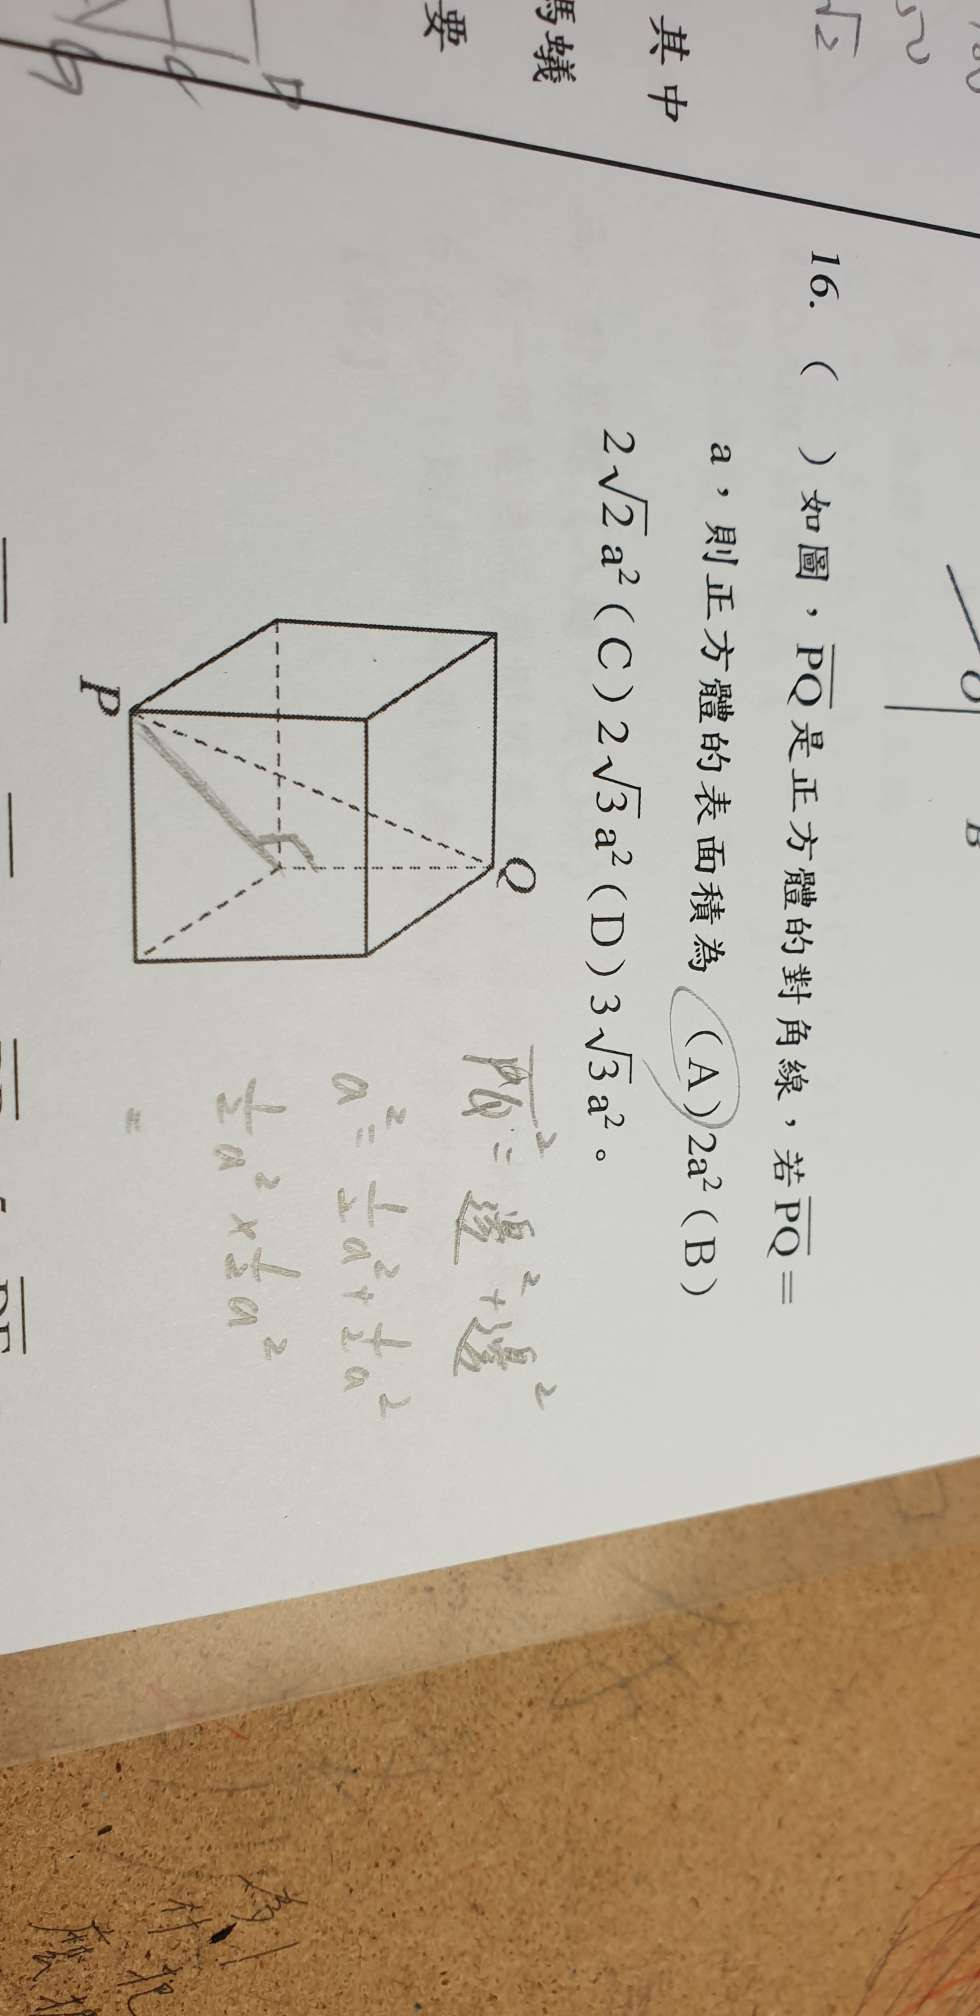 其中
螞蟻
要
√2
16. (　) 如圖，P̅Q̅ 是正方體的對角線，若 P̅Q̅ =
a，則正方體的表面積為 (A) 2a² (B)
2√2 a² (C) 2√3 a² (D) 3√3 a²。
Q
P
P̅Q̅² = 邊² + 邊²
a² = ½a² + ½a²
½a² × ½a²
=
O
B